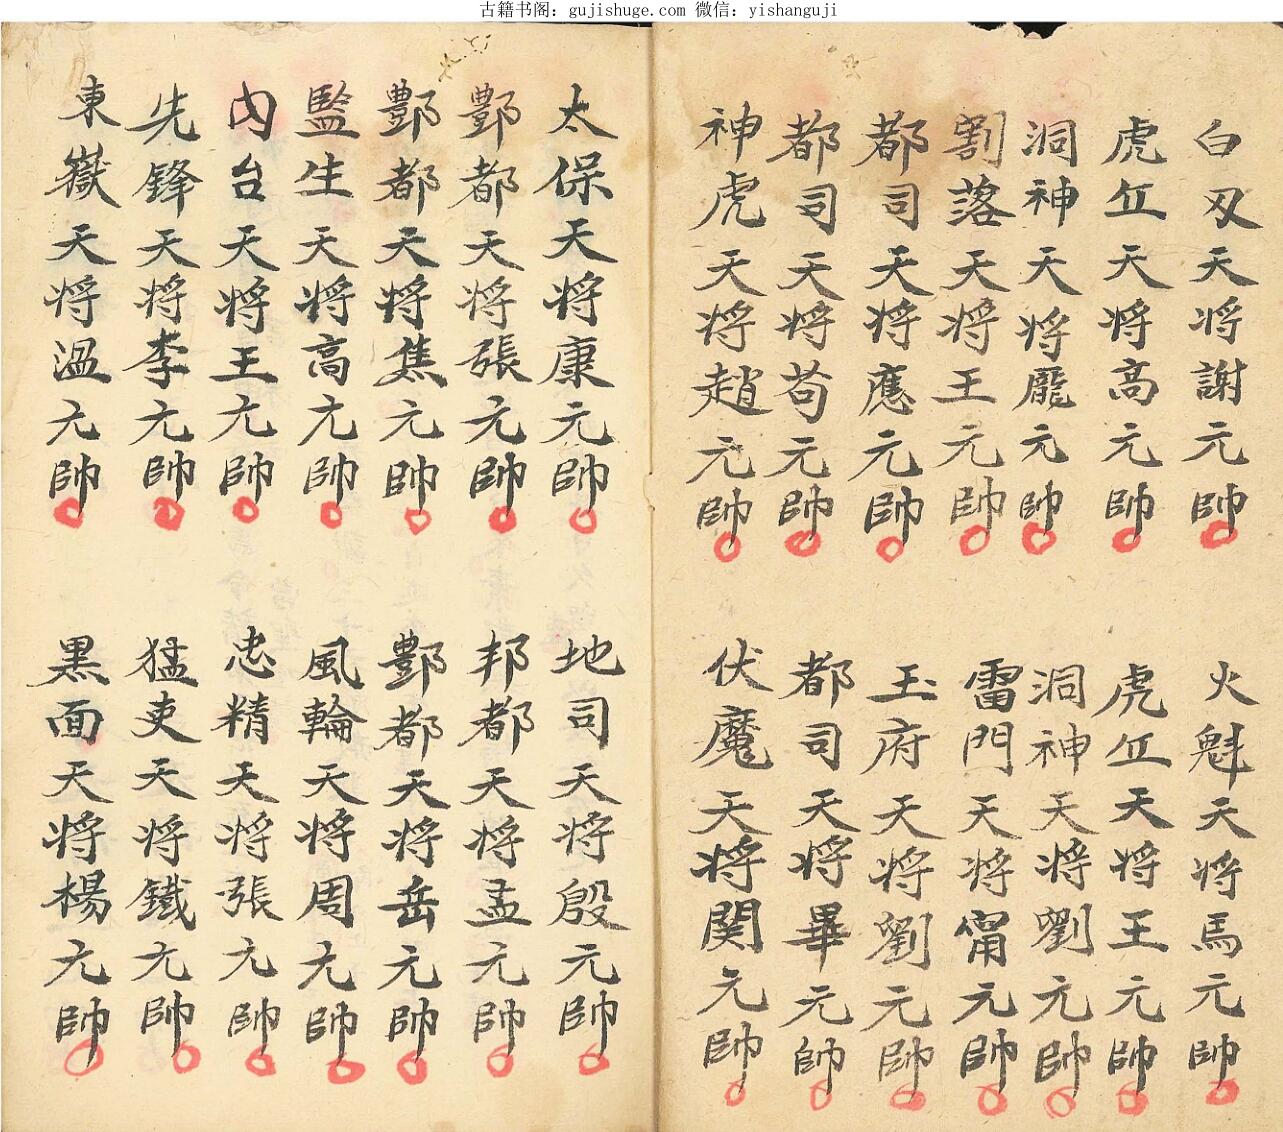 古籍书阁：gujishuge.com 微信：yishanguji
白刃天将謝元帥
火魁天将馬元帥
虎丘天将高元帥
虎丘天将王元帥
洞神天将龐元帥
洞神天将劉元帥
割落天将王元帥
雷門天将甯元帥
都司天将應元帥
玉府天将劉元帥
都司天将苟元帥
都司天将畢元帥
神虎天将趙元帥
伏魔天将関元帥
太保天将康元帥
地司天将殷元帥
酆都天将張元帥
邦都天将孟元帥
酆都天将焦元帥
酆都天将岳元帥
監生天将高元帥
風輪天将周元帥
内台天将王元帥
忠精天将張元帥
先鋒天将李元帥
猛吏天将鐵元帥
東嶽天将温元帥
黒面天将楊元帥